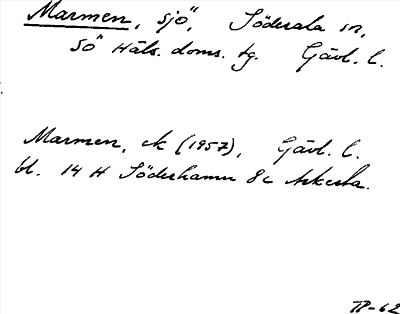 Marmen, sjö, Söderala sn,
SÖ Häls. doms. tg. Gävl. l.
Marmen, ek (1957), Gävl. l.
bl. 14 H Söderhamn 8c Askesta.
TP-62